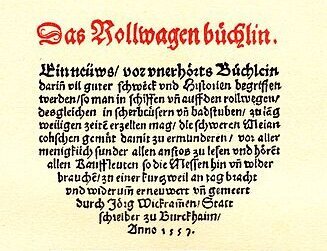 Das Rollwagen büchlin.
Ein neüws / vor vnerhörts Büchlein
dariñ vil guter schwenck vnd Historien begriffen
werden / so man in schiffen vñ auff den rollwegen /
desgleichen in scherheüsern vñ badstuben / zu läg
weiligen zeitē erzellen mag / die schweren Melan
colischen gemüt damit zu ermunderen / vor aller
menigklich sunder allen anstos zu lesen vnd hören
allen Kauffleuten so die Messen hin vñ wider
brauchē / zu einer kurtzweil an tag bracht
vnd widerum̄ erneuwert vñ gemeert
durch Jörg Wickramen / Statt
schreiber zu Burckhaim /
Anno 1557.